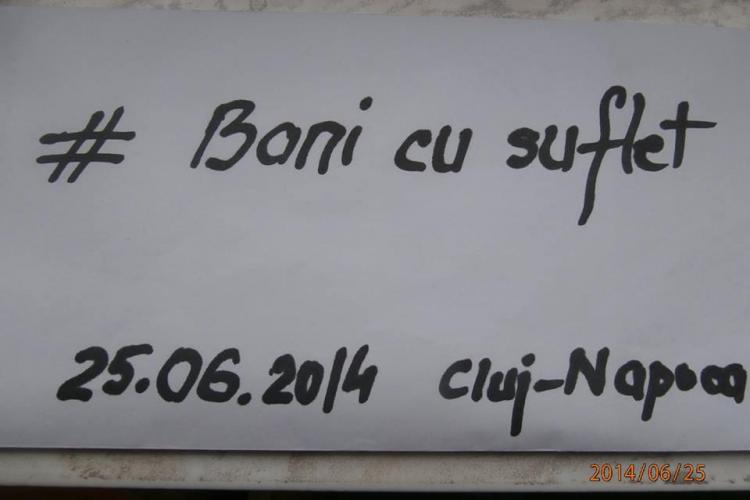 # Bani cu suflet
25.06.2014 Cluj-Napoca
2014/06/25